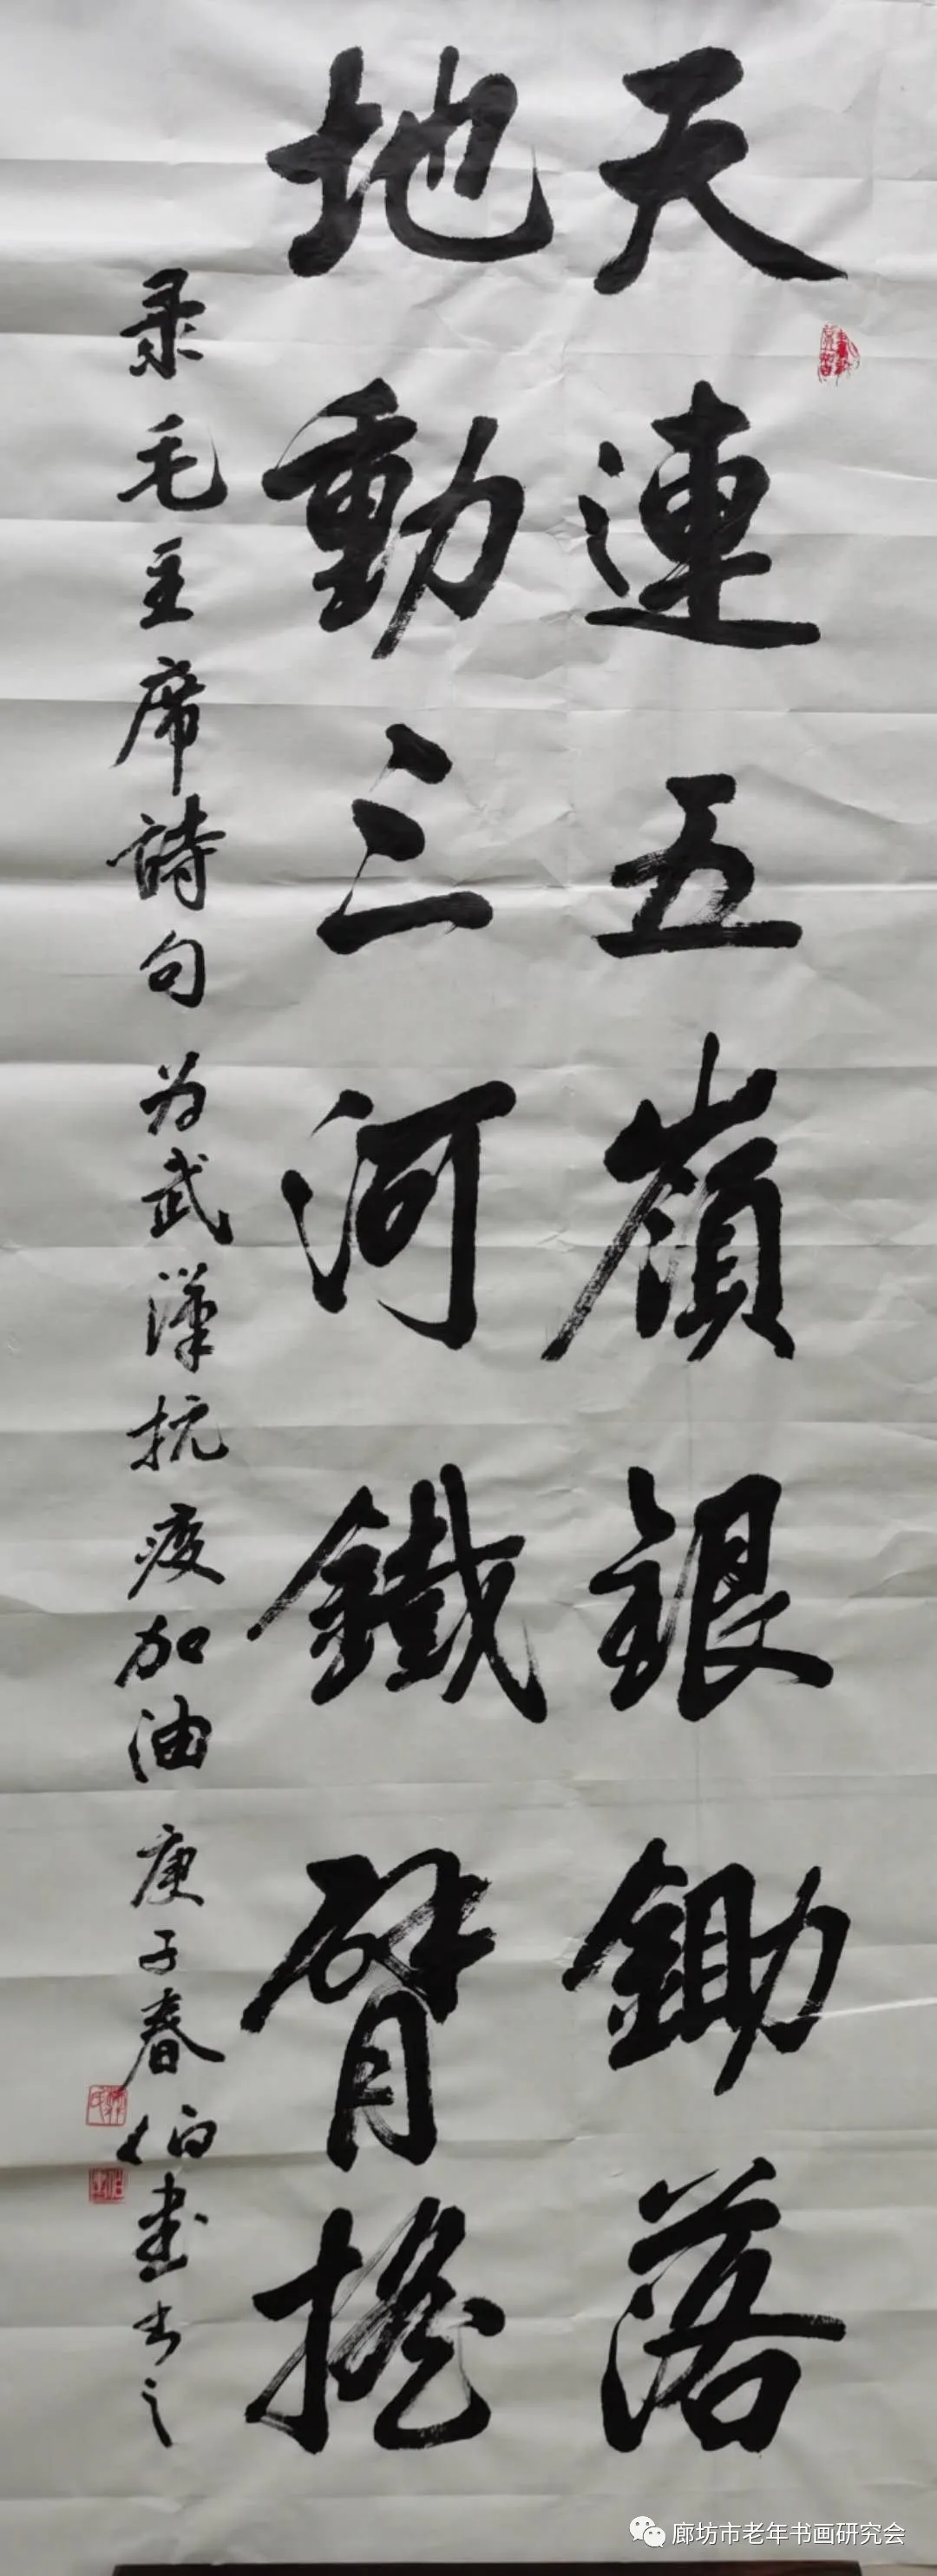 天連五嶺銀鋤落
地動三河鐵臂摇
录毛主席詩句为武漢抗疫加油庚子春伯画书之
廊坊市老年书画研究会